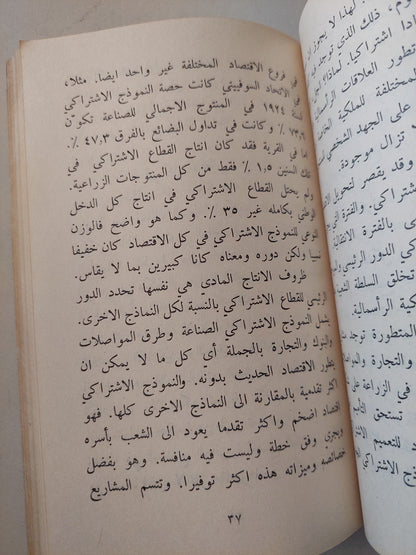 في فروع الاقتصاد المختلفة غير واحد ايضا. مثلا،
في الاتحاد السوفييتي كانت حصة النموذج الاشتراكي
لسنة ١٩٢٤ في المنتوج الاجمالي للصناعة تكوّن
وكانت في تداول البضائع بالفرق ٤٧,٣ ٪.
اما في القرية فقد كان انتاج القطاع الاشتراكي في
تلك السنين ١,٥ ٪ فقط من كل المنتوجات الزراعية.
ولم يحتل القطاع الاشتراكي في انتاج كل الدخل
الوطني بكامله غير ٣٥ ٪. وكما هو واضح فالوزن
النوعي للنموذج الاشتراكي في كل الاقتصاد كان خفيفا
نسبيا ولكن دوره ومعناه كانا كبيرين بما لا يقاس.
ظروف الانتاج المادي هي نفسها تحدد الدور
الرئيسي للقطاع الاشتراكي بالنسبة لكل النماذج الاخرى.
يشمل النموذج الاشتراكي الصناعة وطرق المواصلات
والبنوك والتجارة بالجملة أي كل ما لا يمكن ان
يتطور الاقتصاد الحديث بدونه. والنموذج الاشتراكي
اكثر تقدمية بالمقارنة الى النماذج الاخرى كلها. فهو
اقتصاد اضخم واكثر تقدما يعود الى الشعب بأسره
ويجري وفق خطة وليست فيه منافسة. وهو بفضل
خصائصه وميزاته هذه اكثر توفيرا. وتتسم المشاريع
٣٧
لهذا لا يجوز
ذلك الذي توجد فيه
اشتراكيا. لماذا
تطور العلاقات
المختلفة للملكية
على الجهد الشخصي
تزال موجودة.
وقد يقصر لتحويل
والفترة
بالفترة
الدور الرئيسي
تخلق السلطة
الرأسمالية.
المتطورة توجد
والتجارة
في الزراعة على
تستحق
للتعميم